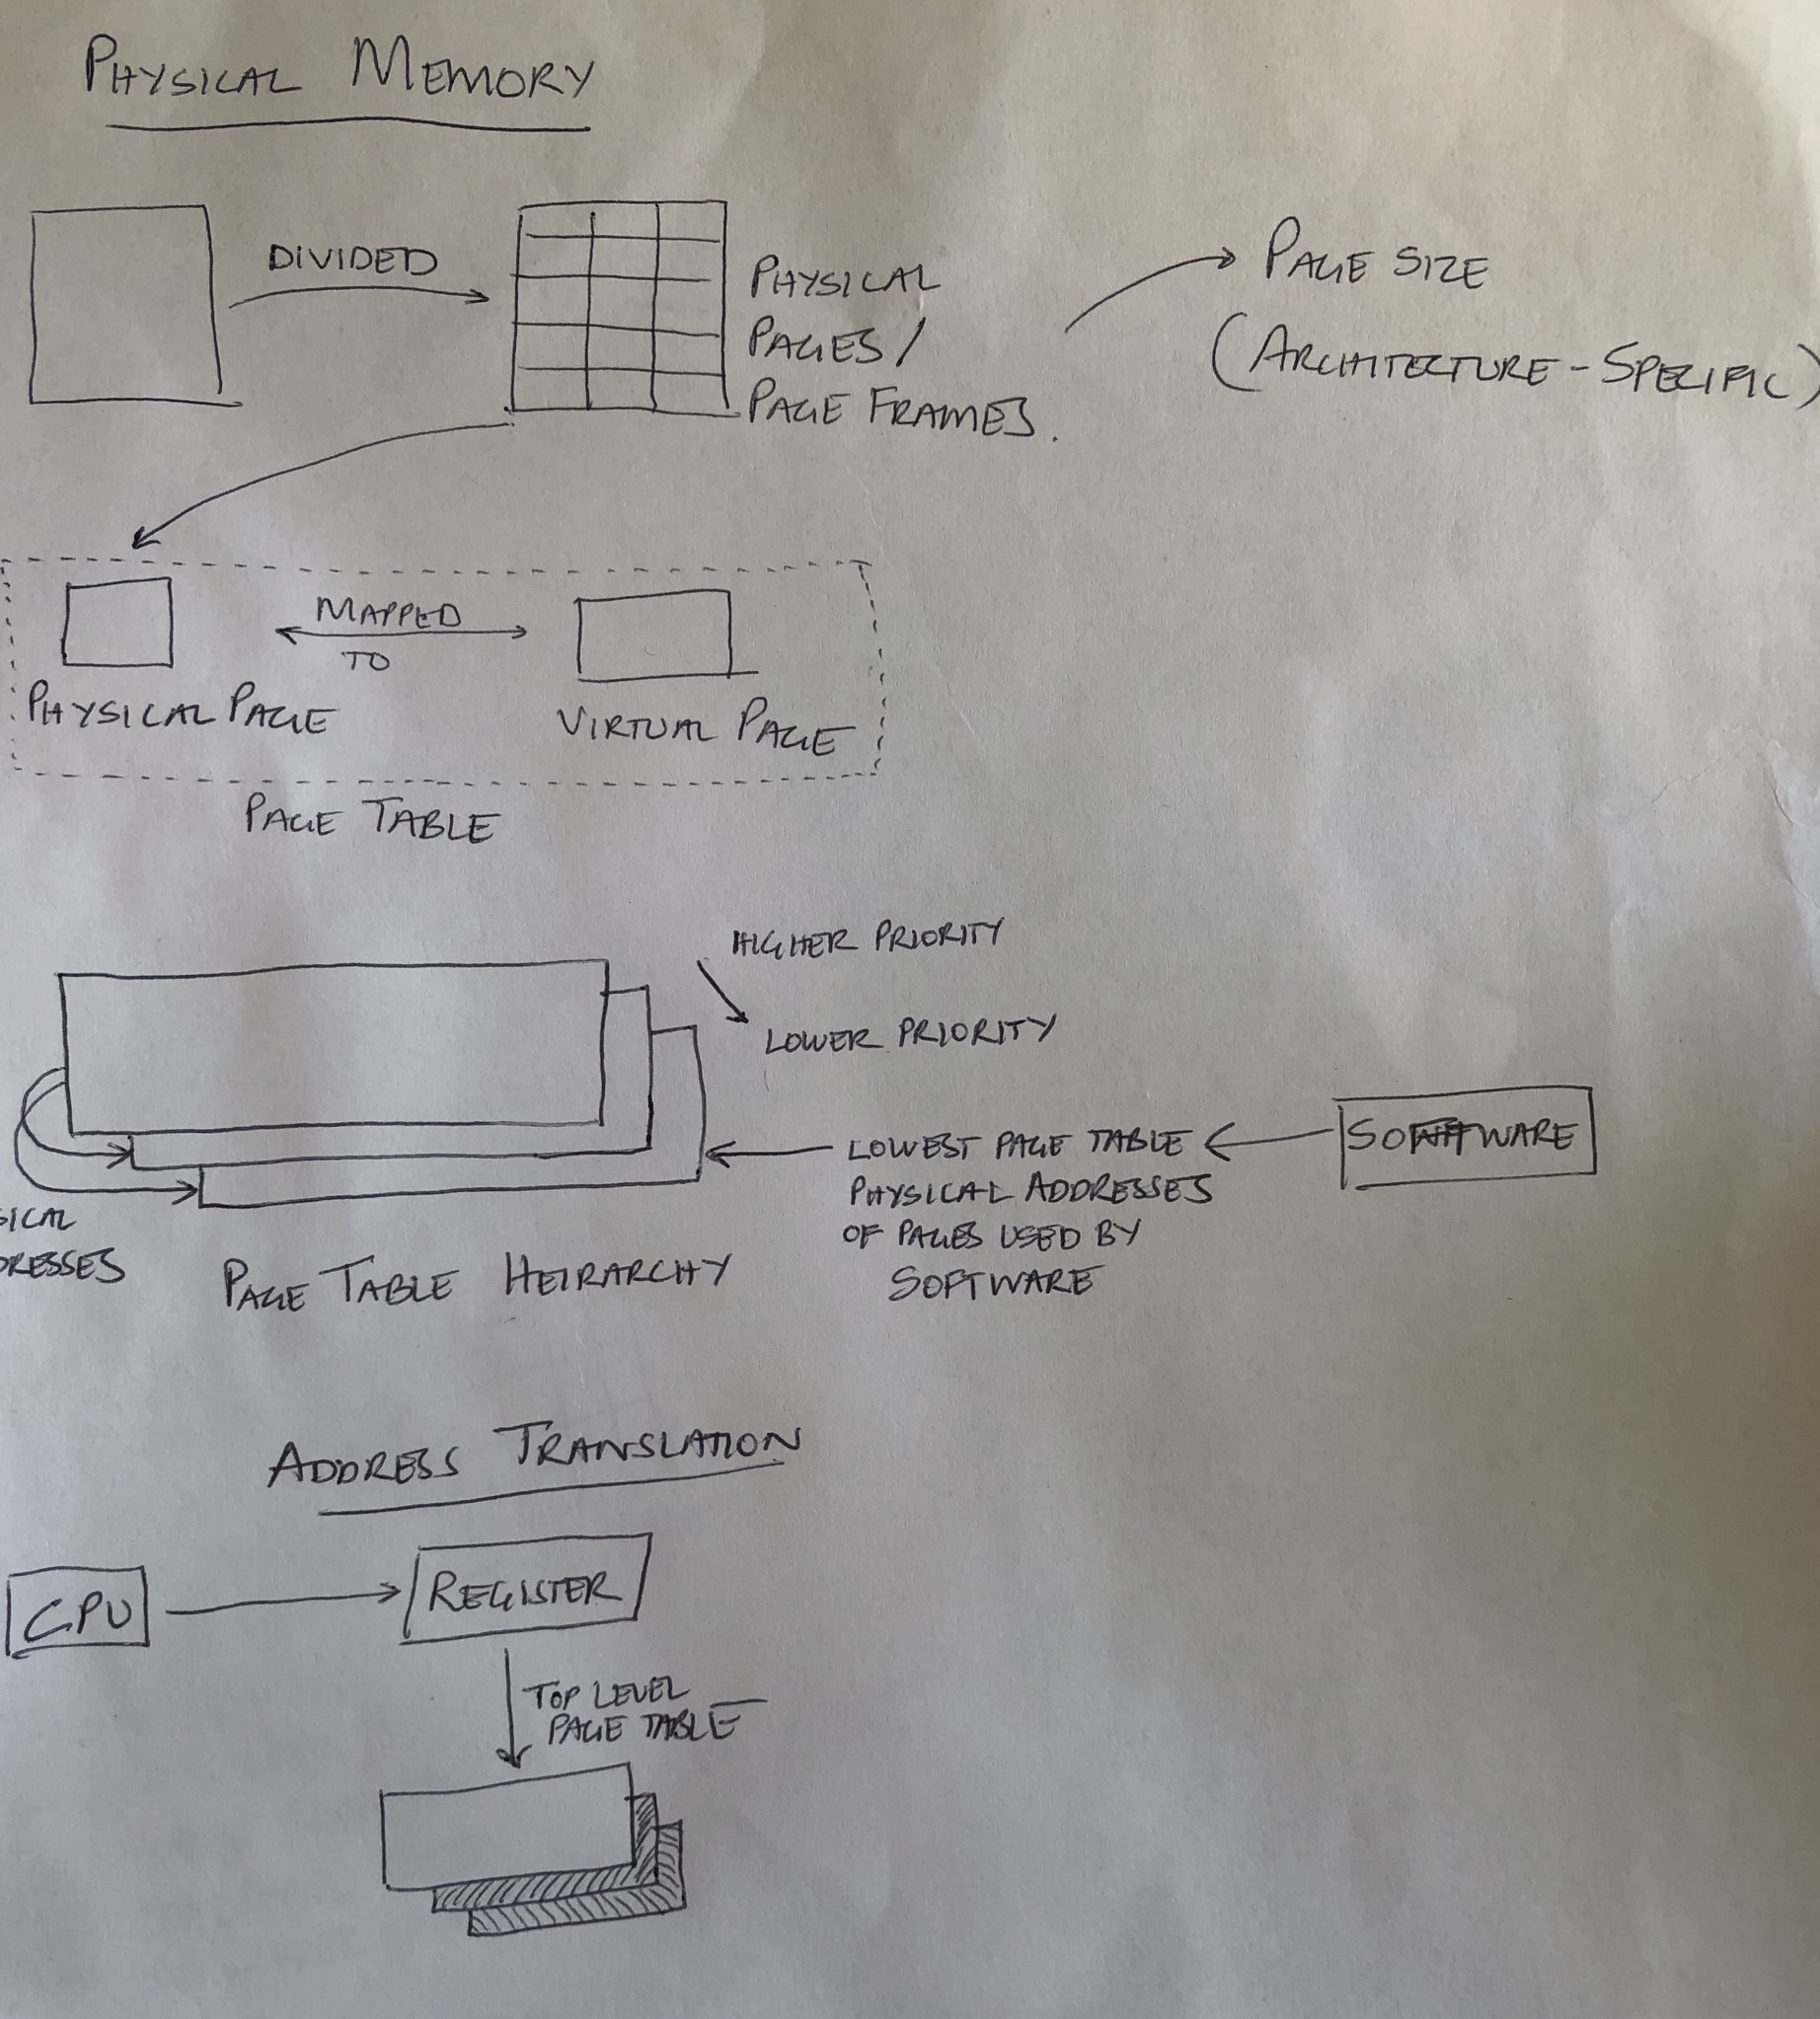 PHYSICAL MEMORY
DIVIDED
PHYSICAL
PAGES/
PAGE FRAMES.
PAGE SIZE
(ARCHITECTURE-SPECIFIC)
MAPPED
TO
PHYSICAL PAGE
VIRTUAL PAGE
PAGE TABLE
HIGHER PRIORITY
LOWER PRIORITY
LOWEST PAGE TABLE
PHYSICAL ADDRESSES
OF PAGES USED BY
SOFTWARE
SOFTWARE
SICAL
DRESSES
PAGE TABLE HEIRARCHY
ADDRESS TRANSLATION
CPU
REGISTER
TOP LEVEL
PAGE TABLE